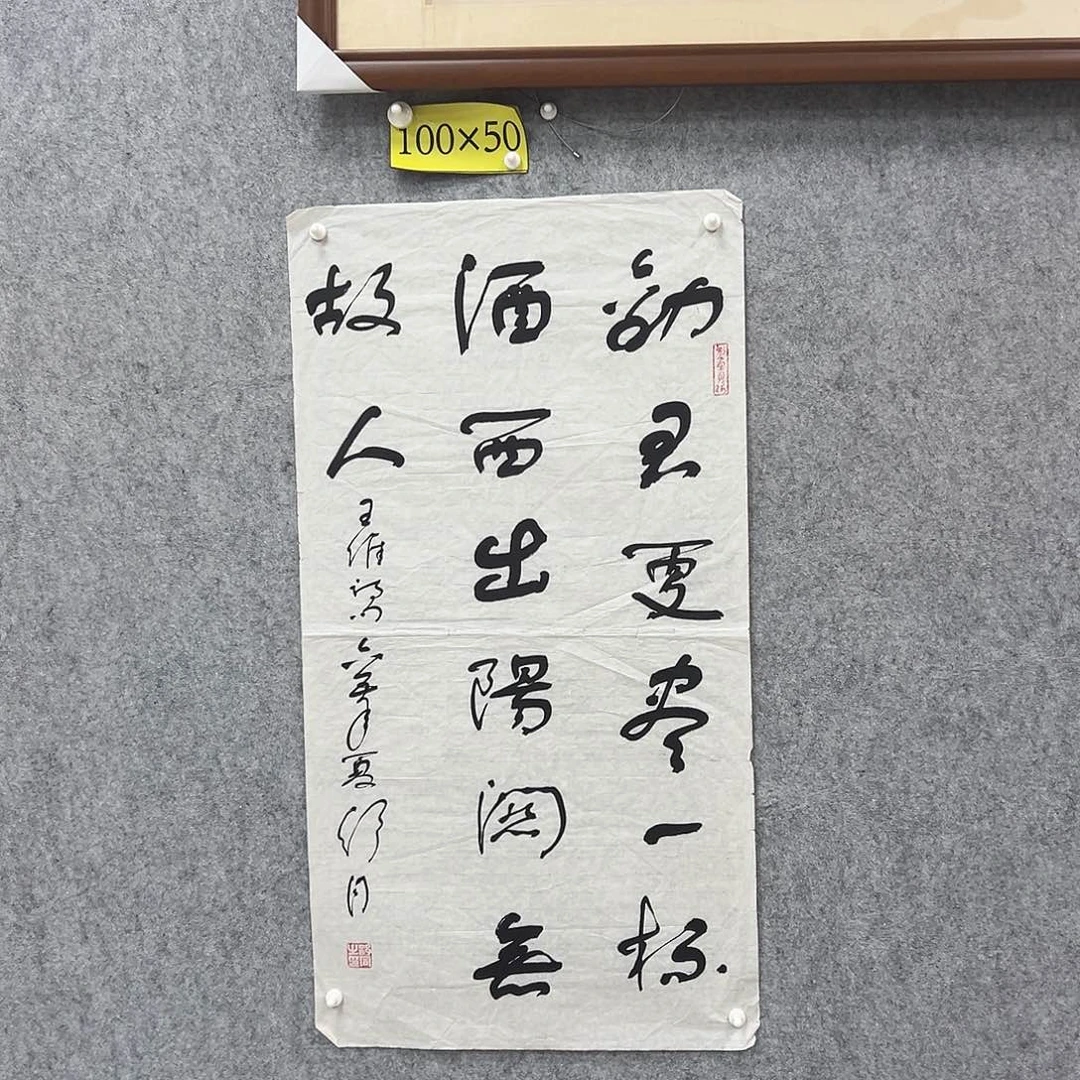 100×50
勸君更盡一杯
酒西出陽關無
故人
王維詩